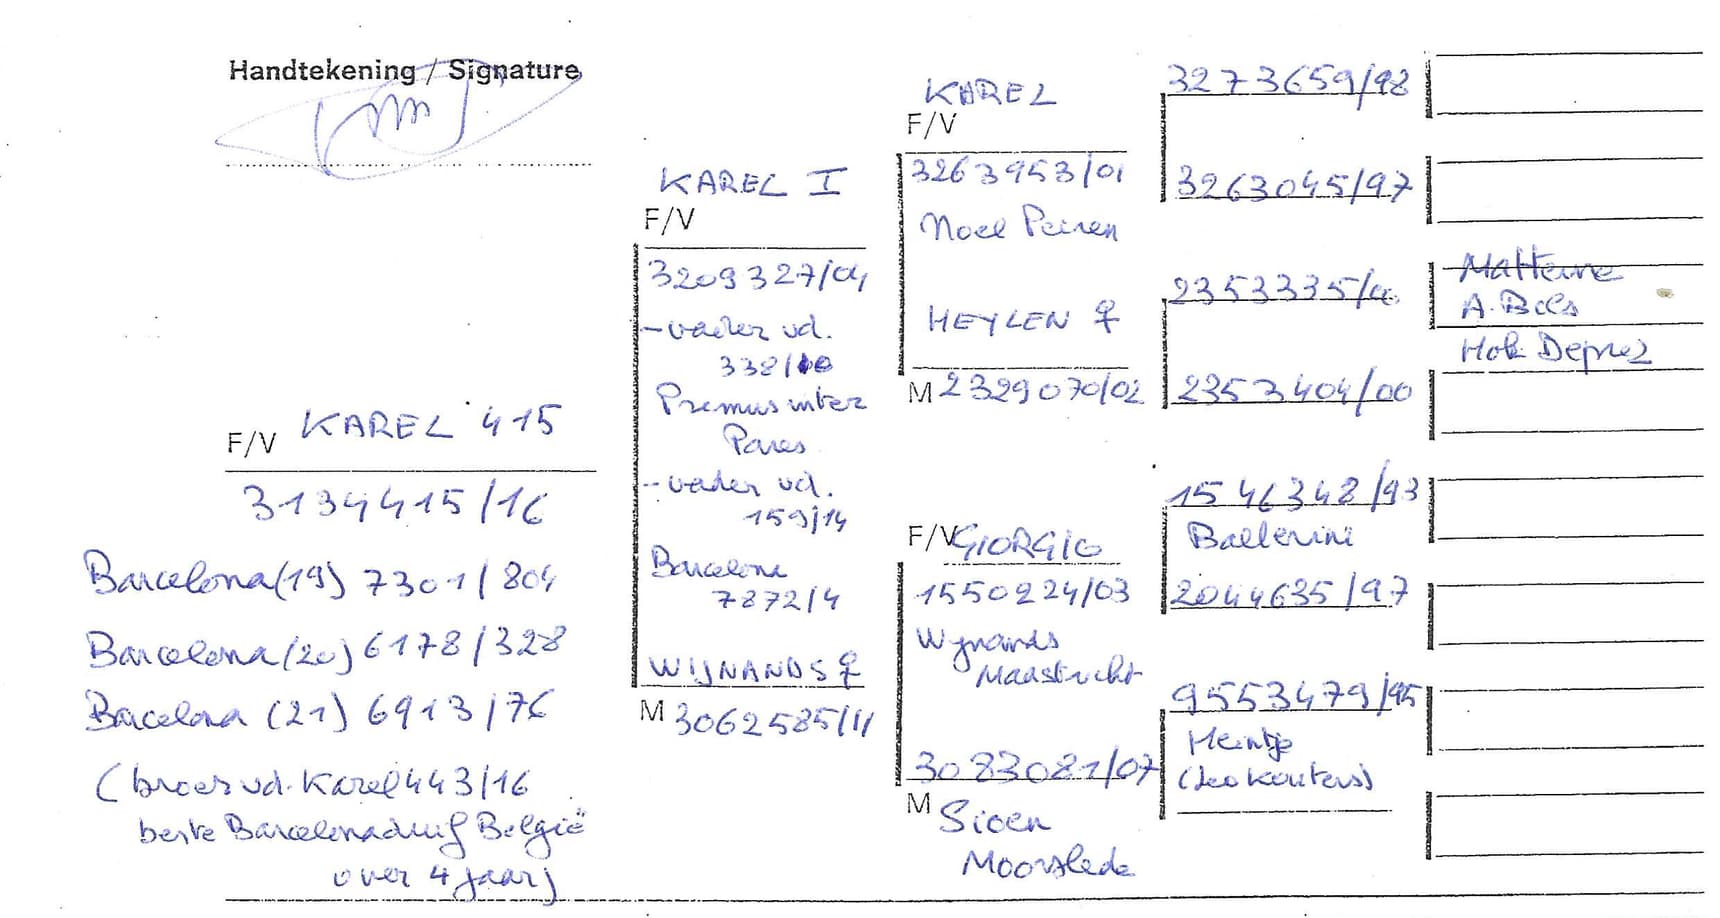 Handtekening / Signature
F/V KAREL 415
3134415/16
Barcelona (19) 7301/804
Barcelona (20) 6178/328
Barcelona (21) 6913/76
(broer vd. Karel 443/16
beste Barcelonaduif België
over 4 jaar)
KAREL I
F/V
3209327/04
- vader vd.
338/10
Primus inter
Pares
- vader vd.
159/14
Barcelona
7872/4
WIJNANDS ♀
M 3062585/11
KAREL
F/V
3263953/01
Noel Peiren
HEYLEN ♀
M 2329070/02
F/V GIORGIO
1550224/03
Wynands
Maastricht
3083081/07
M Sioen
Moorslede
3273659/98
3263045/97
2353335/00
2353404/00
1546348/93
Ballerini
2044635/97
9553479/95
Heintje
(Leo Kouters)
A. Bols
Hok Deprez